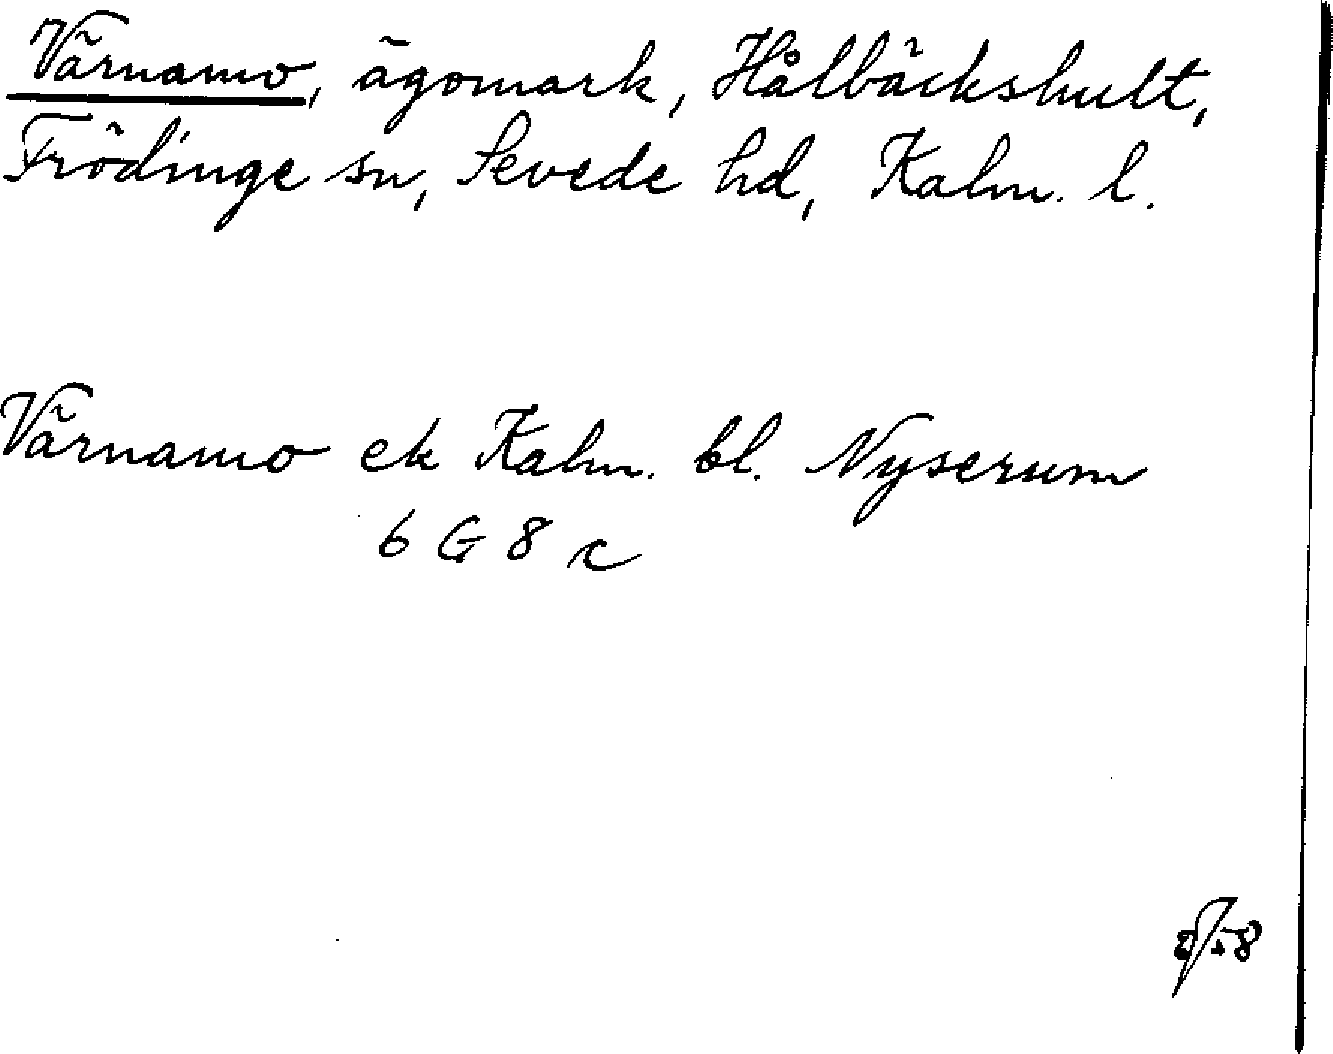 Värnamo, ägomark, Hålbäckshult,
Frödinge sn, Sevede hd, Kalm. l.
Värnamo ek Kalm. bl. Nyserum
6 G 8 c